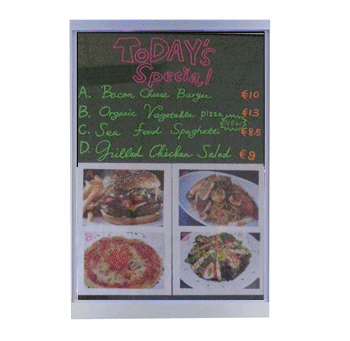 ToDAY's
Special
A. Bacon Cheese Burger €10
B. Organic Vegetable pizza €13
NEW
C. Sea food Spaghetti €8.5
D. Grilled Chicken Salad €9